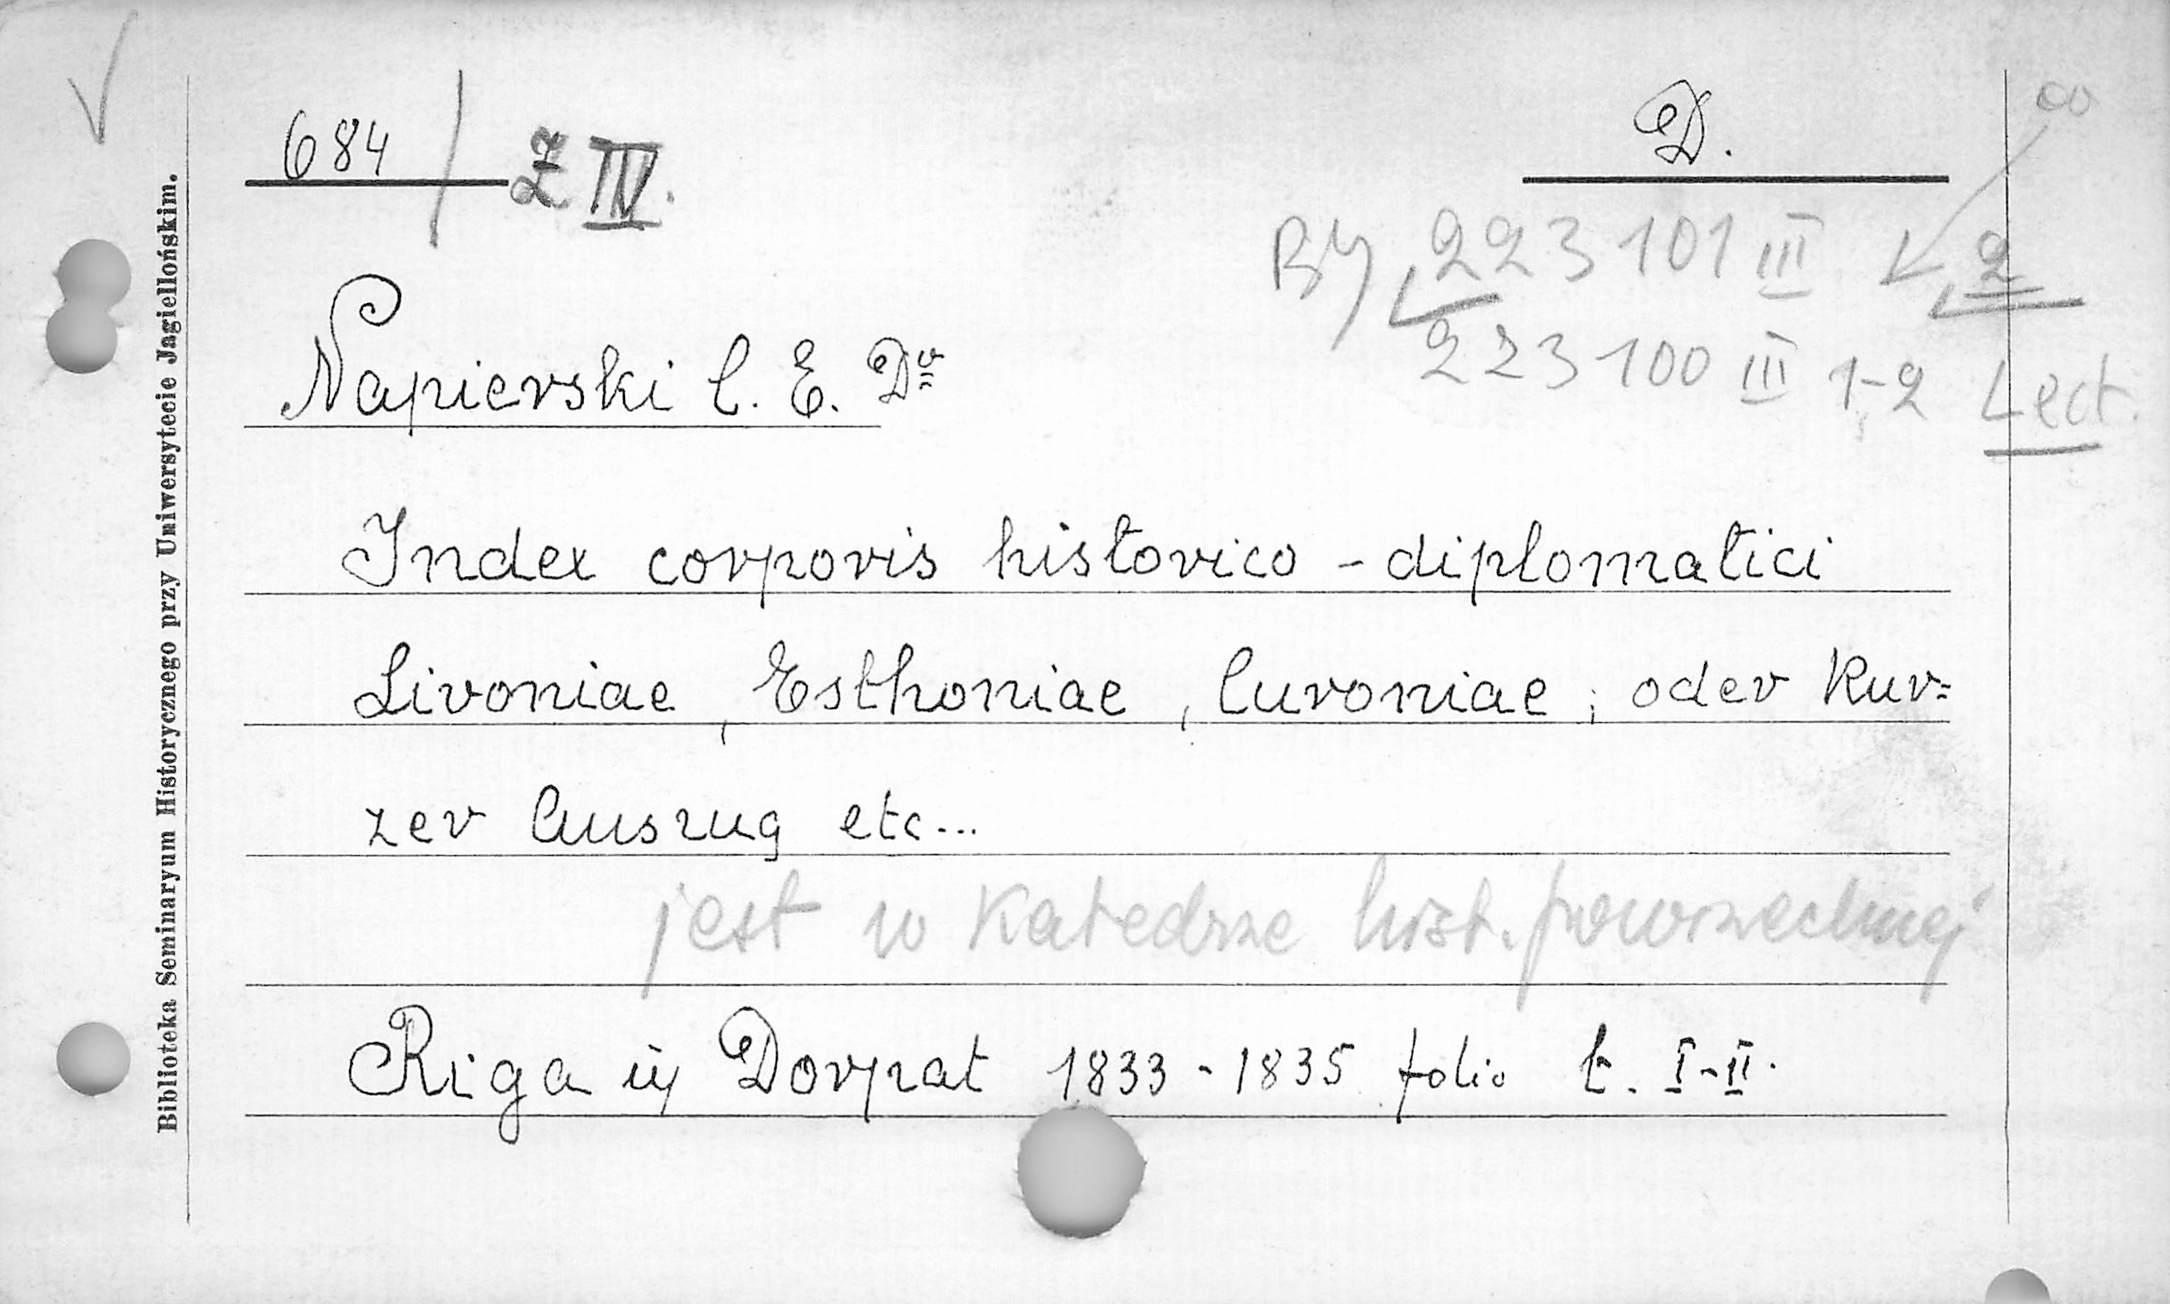 684 / Z IV.
D.
∞
BJ 223101 III 2
223100 III 1-2 Lect.
Napierski C. E. Dr
Index corporis historico-diplomatici
Livoniae, Esthoniae, Curoniae; oder Kur=
zer Auszug etc...
jest w Katedrze hist. powszechnej
Riga ij Dorpat 1833-1835 folio t. I-II.
Biblioteka Seminaryum Historycznego przy Uniwersytecie Jagiellońskim.